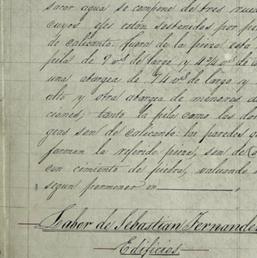 sacar agua se compone de tres rued
cuyos ejes están sostenidos por pi
de calicanto: fuera de la pieza está
pila de 9 v.s de largo y 1 3/4 v.s de
una atargea de 74 v.s de largo y
alto y otra atargea de menores di
ciones; tanto la pila como las dos
geas son de calicanto: las paredes q
forman la referida pieza, son de
con cimiento de piedra, valuando
segun pormenor en
Labor de Sebastian Fernandez
Edificios